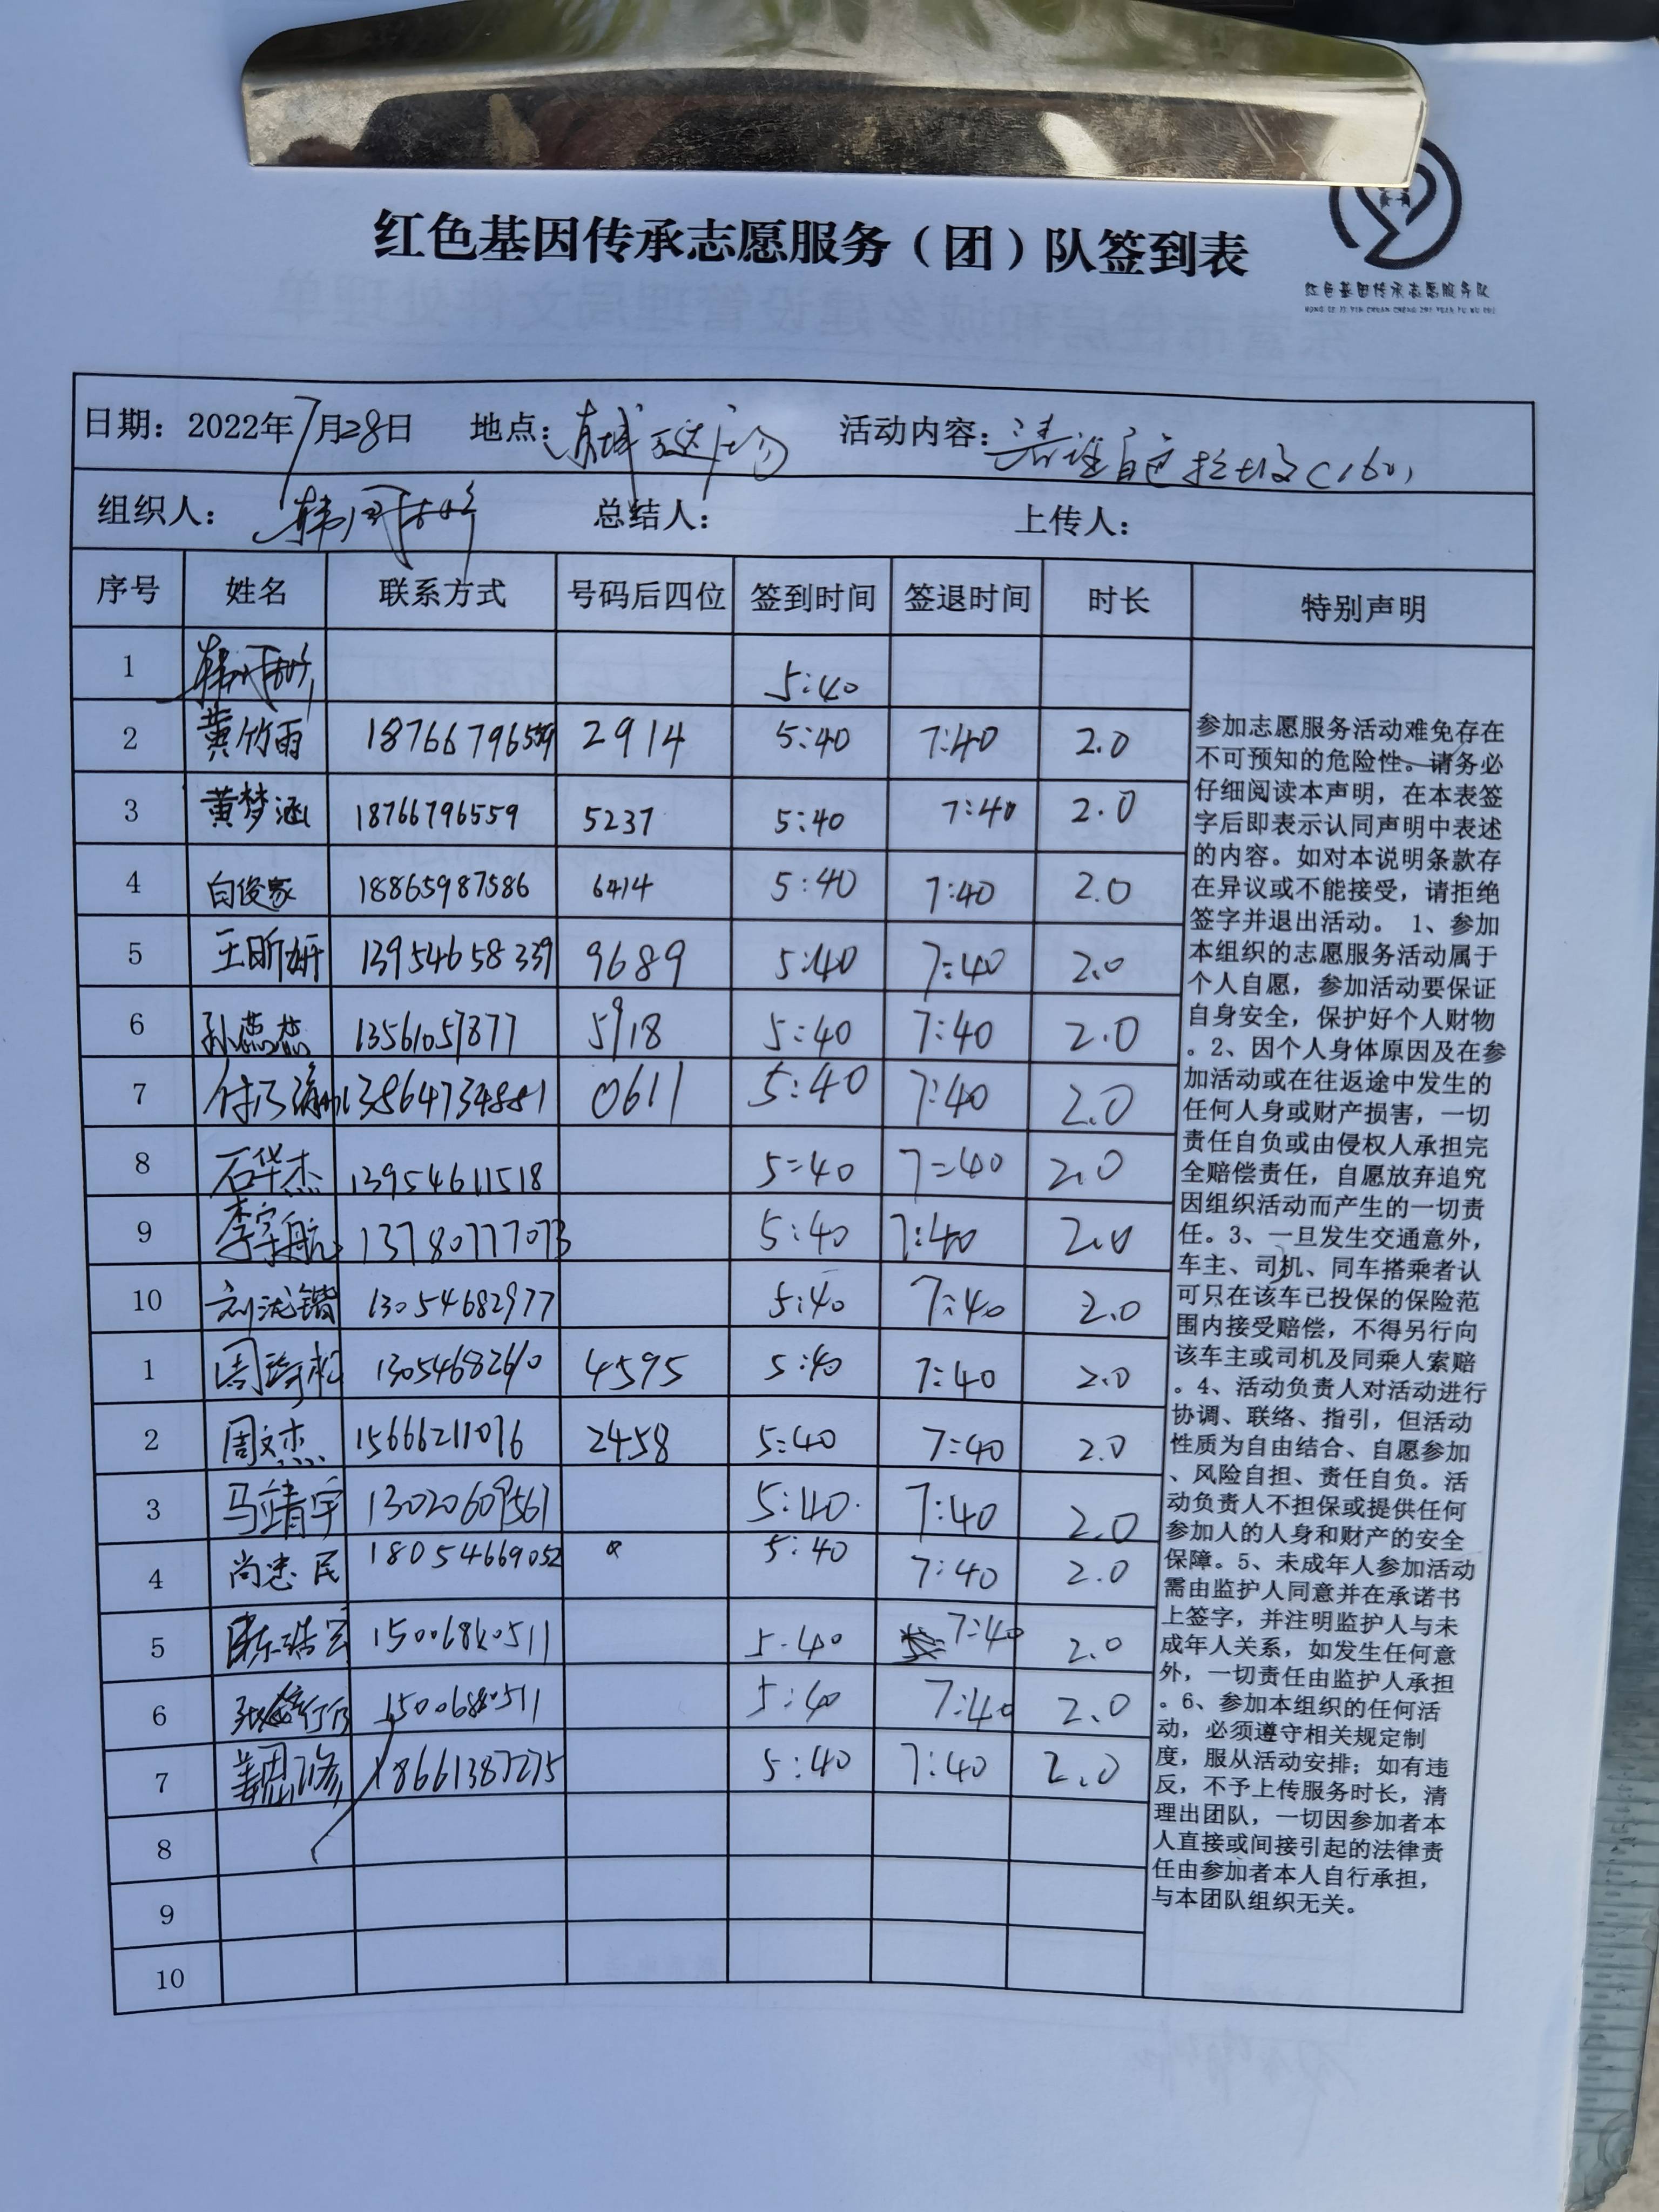 红色基因传承志愿服务（团）队签到表
红色基因传承志愿服务队
HONG SE JI YIN CHUAN CHENG ZHI YUAN FU WU DUI
日期：2022年7月28日 地点：东城万达广场 活动内容：清理白色垃圾(160)
组织人： 总结人： 上传人：
序号 姓名 联系方式 号码后四位 签到时间 签退时间 时长 特别声明
1 5:40
2 黄竹雨 18766796559 2914 5:40 7:40 2.0
3 黄梦涵 18766796559 5237 5:40 7:40 2.0
4 白俊家 18865987586 6414 5:40 7:40 2.0
5 王昕妍 13954658339 9689 5:40 7:40 2.0
6 孙蕊蕊 13561057877 5918 5:40 7:40 2.0
7 13864734881 0611 5:40 7:40 2.0
8 石华杰 13954611518 5:40 7:40 2.0
9 李宇航 13780777073 5:40 7:40 2.0
10 13054682977 5:40 7:40 2.0
1 13054682610 4595 5:40 7:40 2.0
2 周文杰 15666211076 2458 5:40 7:40 2.0
3 马靖宇 13020609561 5:40 7:40 2.0
4 尚忠民 18054669052 5:40 7:40 2.0
5 5:40 7:40 2.0
6 5:40 7:40 2.0
7 18661387275 5:40 7:40 2.0
8
9
10
参加志愿服务活动难免存在
不可预知的危险性。请务必
仔细阅读本声明，在本表签
字后即表示认同声明中表述
的内容。如对本说明条款存
在异议或不能接受，请拒绝
签字并退出活动。 1、参加
本组织的志愿服务活动属于
个人自愿，参加活动要保证
自身安全，保护好个人财物
。2、因个人身体原因及在参
加活动或在往返途中发生的
任何人身或财产损害，一切
责任自负或由侵权人承担完
全赔偿责任，自愿放弃追究
因组织活动而产生的一切责
任。3、一旦发生交通意外，
车主、司机、同车搭乘者认
可只在该车已投保的保险范
围内接受赔偿，不得另行向
该车主或司机及同乘人索赔
。4、活动负责人对活动进行
协调、联络、指引，但活动
性质为自由结合、自愿参加
、风险自担、责任自负。活
动负责人不担保或提供任何
参加人的人身和财产的安全
保障。5、未成年人参加活动
需由监护人同意并在承诺书
上签字，并注明监护人与未
成年人关系，如发生任何意
外，一切责任由监护人承担
。6、参加本组织的任何活
动，必须遵守相关规定制
度，服从活动安排；如有违
反，不予上传服务时长，清
理出团队，一切因参加者本
人直接或间接引起的法律责
任由参加者本人自行承担，
与本团队组织无关。